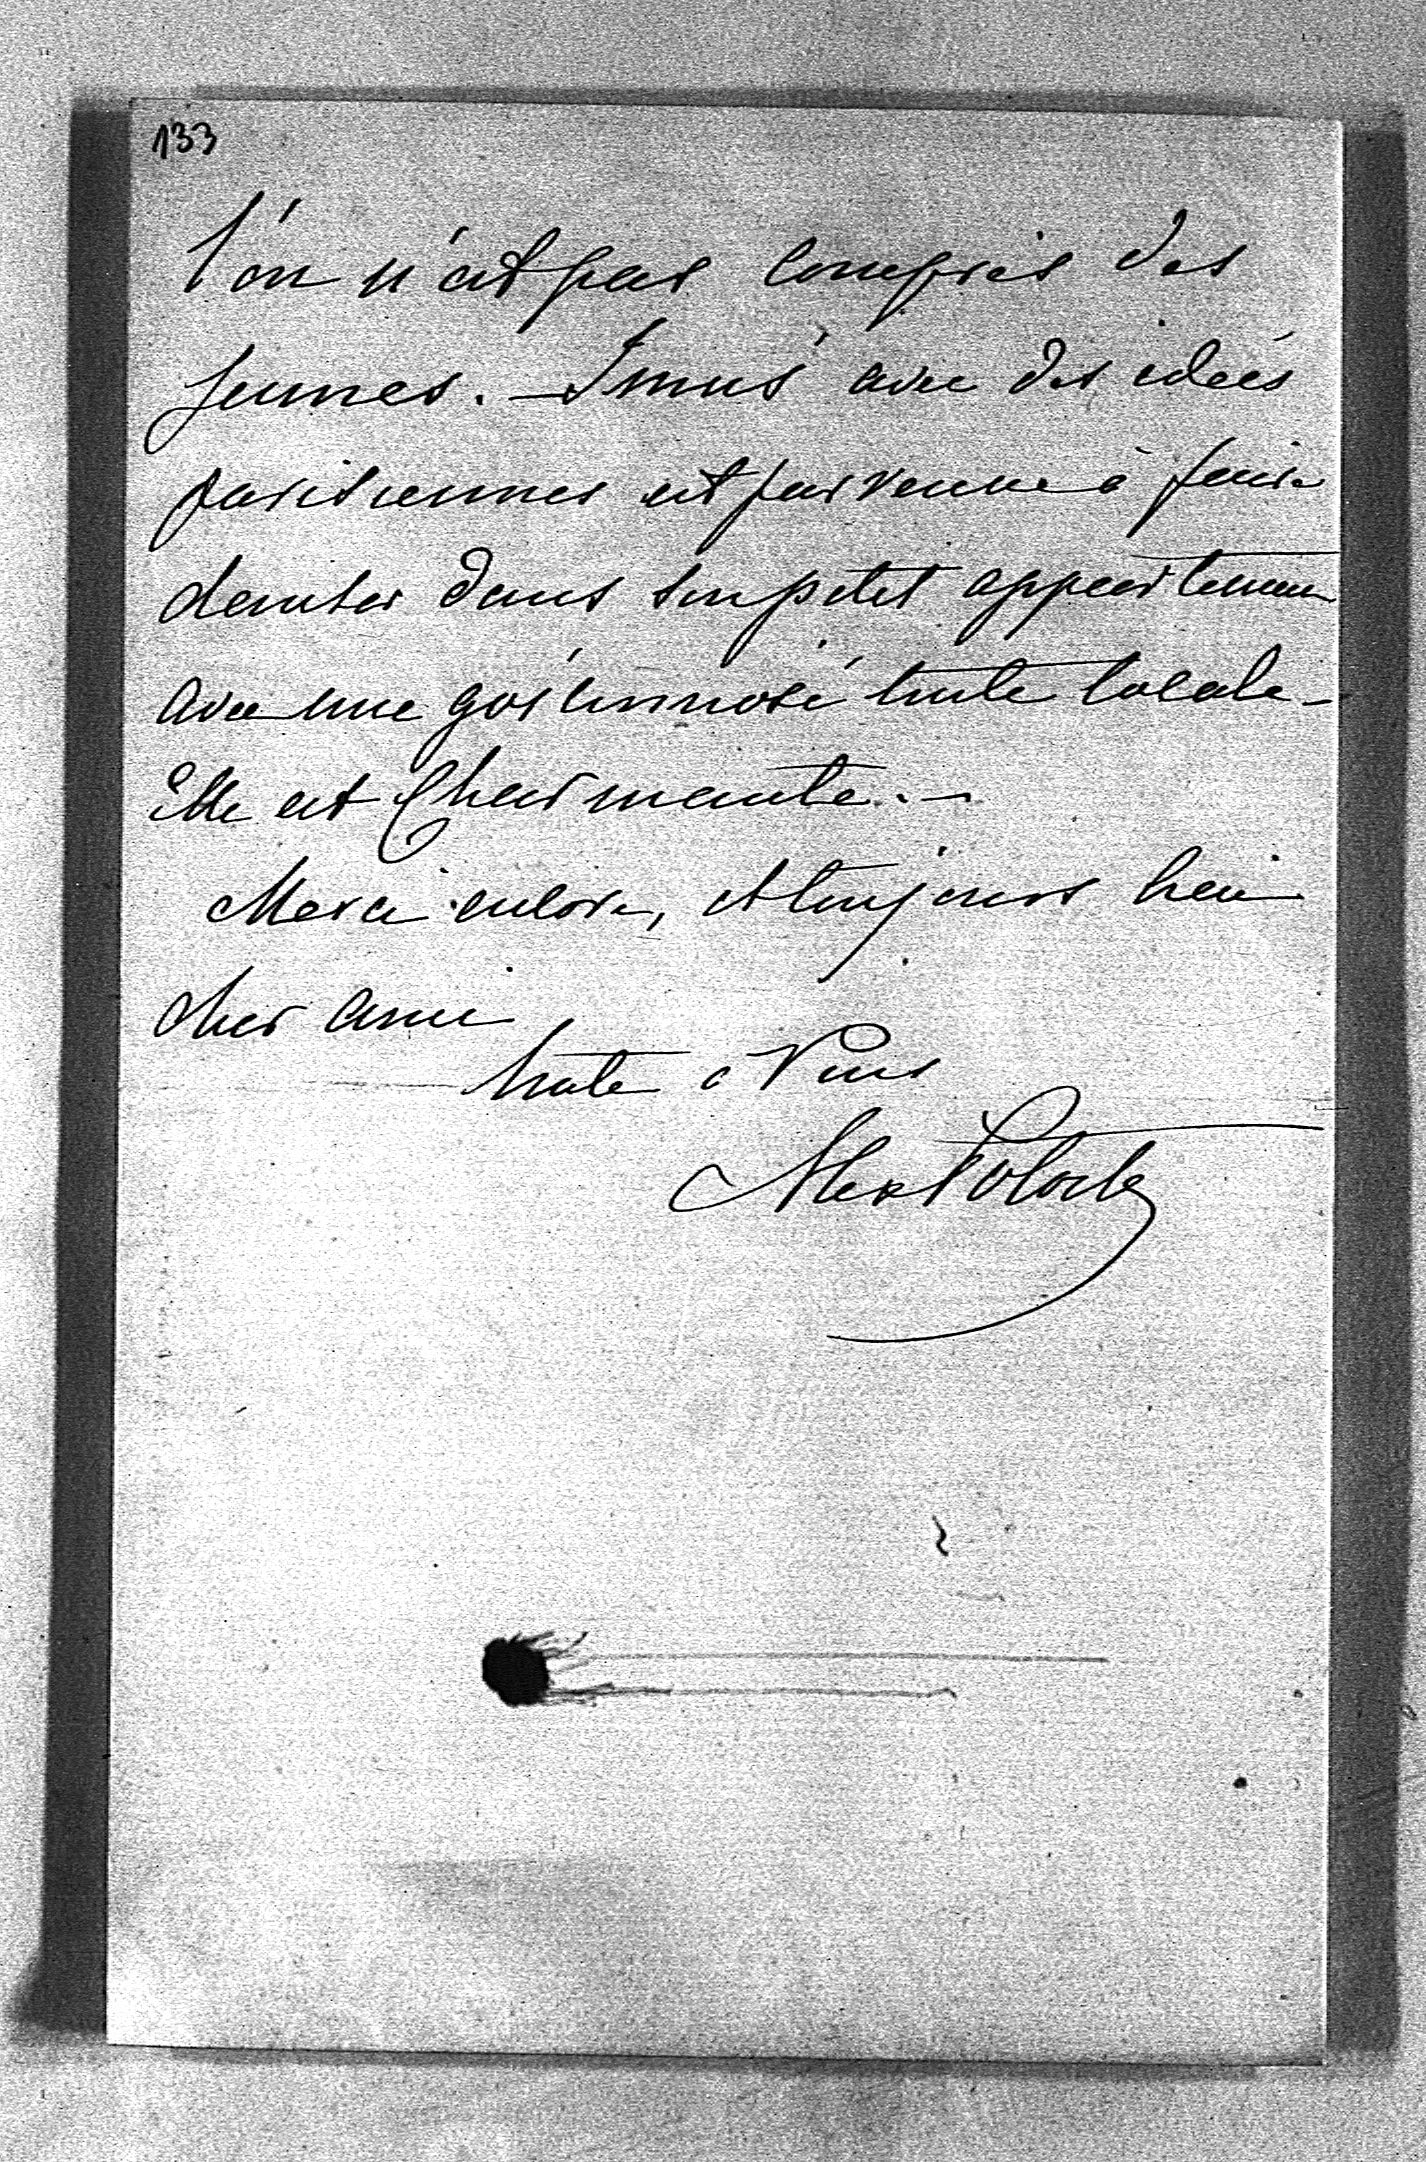 133
l'on n'est pas compris des
jeunes. — Irma avec des idées
parisiennes est parvenue à faire
danser dans son petit appartemen
avec une toute locale —
Elle est Charmante. —
Merci encore, et toujours bien
cher ami
toute à Vous
Alex Polock